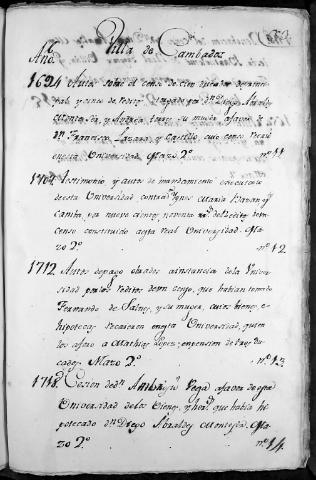 Villa de Cambados
Año
1694 Autos sobre el censo de cien ducados de princi
pal, y cinco de reditos, impuesto por dn Diego Abraldes
y Andrea su muger afavor
dn Francisco Lazaro y Castillo, cuio censo
Universidad. Mazo 2º nº 11
Testimonio y autos de mandamiento executorio
desta Universidad contra Maria
por nueve cientos noventa rs de Reditos de un
censo constituido a esta real Universidad. Ma-
zo 2º nº 12
1712. Autos de pago obrados a instancia de la Univer
sidad por los reditos de un censo, que habian tomado
Fernando de Salnes, y su muger, cuios bienes, e
hipotecas recaieron en esta Universidad, quien
los aforo a Mathias Lopez; en pension de tres Du-
cados. Mazo 2º nº 13
1718. Cesion de dn Ambrosio Vega afavor de esta
Universidad de los bienes, y que habia hi
potecado dn Diego Abraldes Ma-
zo 2º nº 14